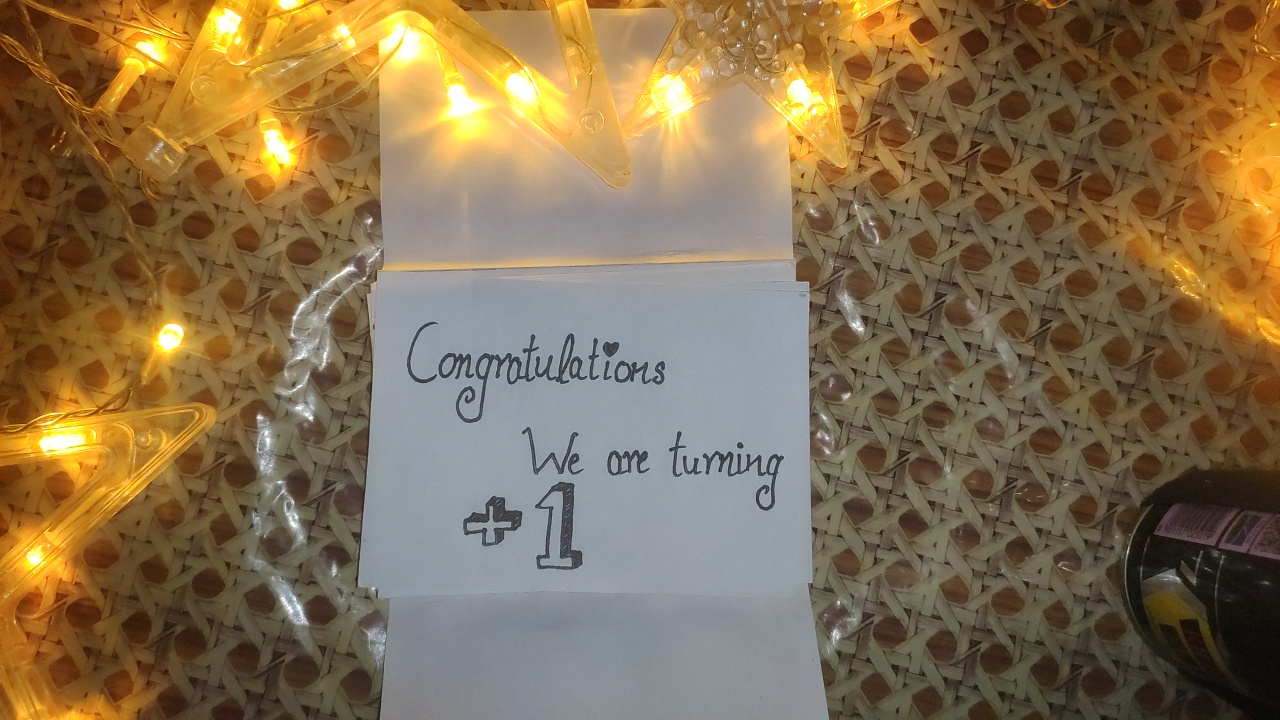 Congratulations
We are turning
+1